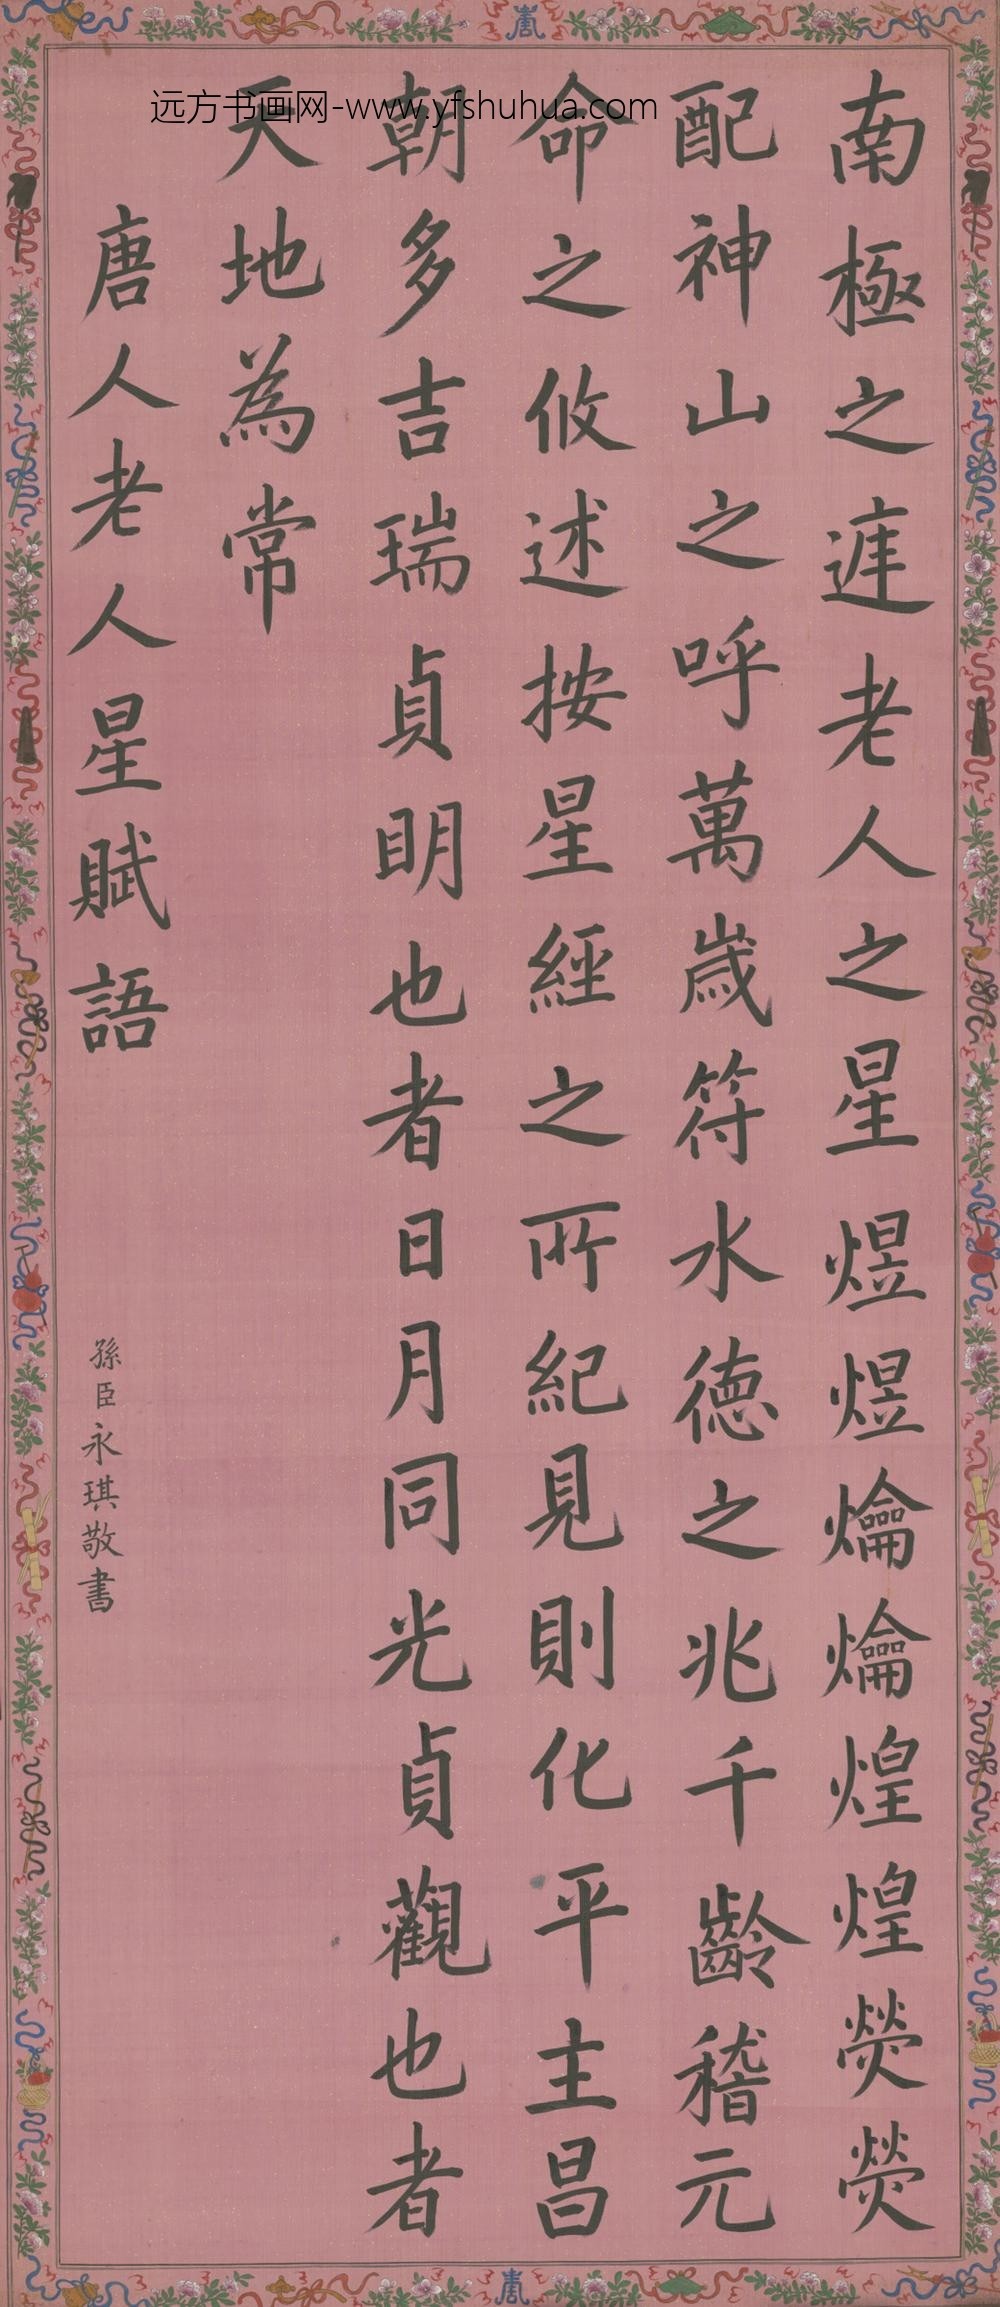 远方书画网-www.yfshuhua.com
南極之庭老人之星煜煜爚爚煌煌熒熒
配神山之呼萬歳符水徳之兆千齡稽元
命之攸述按星經之所紀見則化平主昌
朝多吉瑞貞眀也者日月同光貞觀也者
天地為常
唐人老人星賦語
孫臣永琪敬書